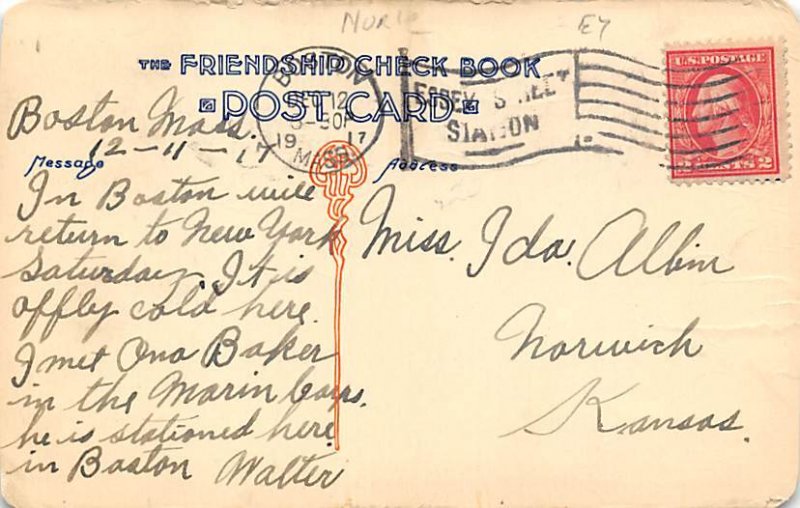 NORW
E7
THE FRIENDSHIP CHECK BOOK
POST CARD
BOSTON
DEC 12
5-30P
19 17
MASS.
ESSEX STREET
STATION
U.S. POSTAGE
2 CENTS 2
Boston Mass.
12-11-17
Message
Address
In Boston will
return to New York
Saturday. It is
offly cold here.
I met Ona Baker
in the Marin Corps.
he is stationed here
in Boston Walter
Miss. Ida. Albin
Norwich
Kansas.